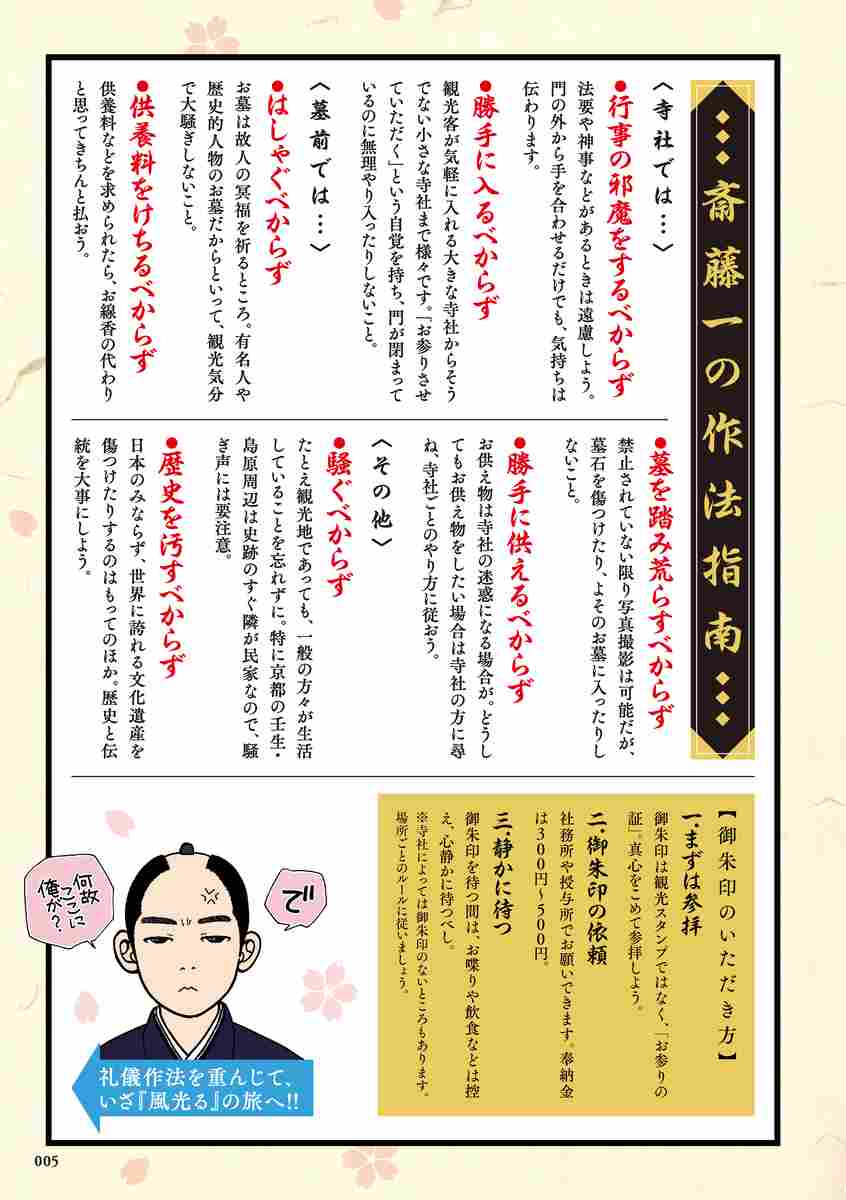 斎藤一の作法指南
〈寺社では…〉
●行事の邪魔をするべからず
法要や神事などがあるときは遠慮しよう。
門の外から手を合わせるだけでも、気持ちは
伝わります。
●勝手に入るべからず
観光客が気軽に入れる大きな寺社からそう
でない小さな寺社まで様々です。「お参りさせ
ていただく」という自覚を持ち、門が閉まって
いるのに無理やり入ったりしないこと。
〈墓前では…〉
●はしゃぐべからず
お墓は故人の冥福を祈るところ。有名人や
歴史的人物のお墓だからといって、観光気分
で大騒ぎしないこと。
●供養料をけちるべからず
供養料などを求められたら、お線香の代わり
と思ってきちんと払おう。
●墓を踏み荒らすべからず
禁止されていない限り写真撮影は可能だが、
墓石を傷つけたり、よそのお墓に入ったりし
ないこと。
●勝手に供えるべからず
お供え物は寺社の迷惑になる場合が。どうし
てもお供え物をしたい場合は寺社の方に尋
ね、寺社ごとのやり方に従おう。
〈その他〉
●騒ぐべからず
たとえ観光地であっても、一般の方々が生活
していることを忘れずに。特に京都の壬生・
島原周辺は史跡のすぐ隣が民家なので、騒
ぎ声には要注意。
●歴史を汚すべからず
日本のみならず、世界に誇れる文化遺産を
傷つけたりするのはもってのほか。歴史と伝
統を大事にしよう。
【御朱印のいただき方】
一.まずは参拝
御朱印は観光スタンプではなく、「お参りの
証」。真心をこめて参拝しよう。
二.御朱印の依頼
社務所や授与所でお願いできます。奉納金
は300円〜500円。
三.静かに待つ
御朱印を待つ間は、お喋りや飲食などは控
え、心静かに待つべし。
※寺社によっては御朱印のないところもあります。
場所ごとのルールに従いましょう。
で
何故
ここに
俺が?
礼儀作法を重んじて、
いざ『風光る』の旅へ!!
005